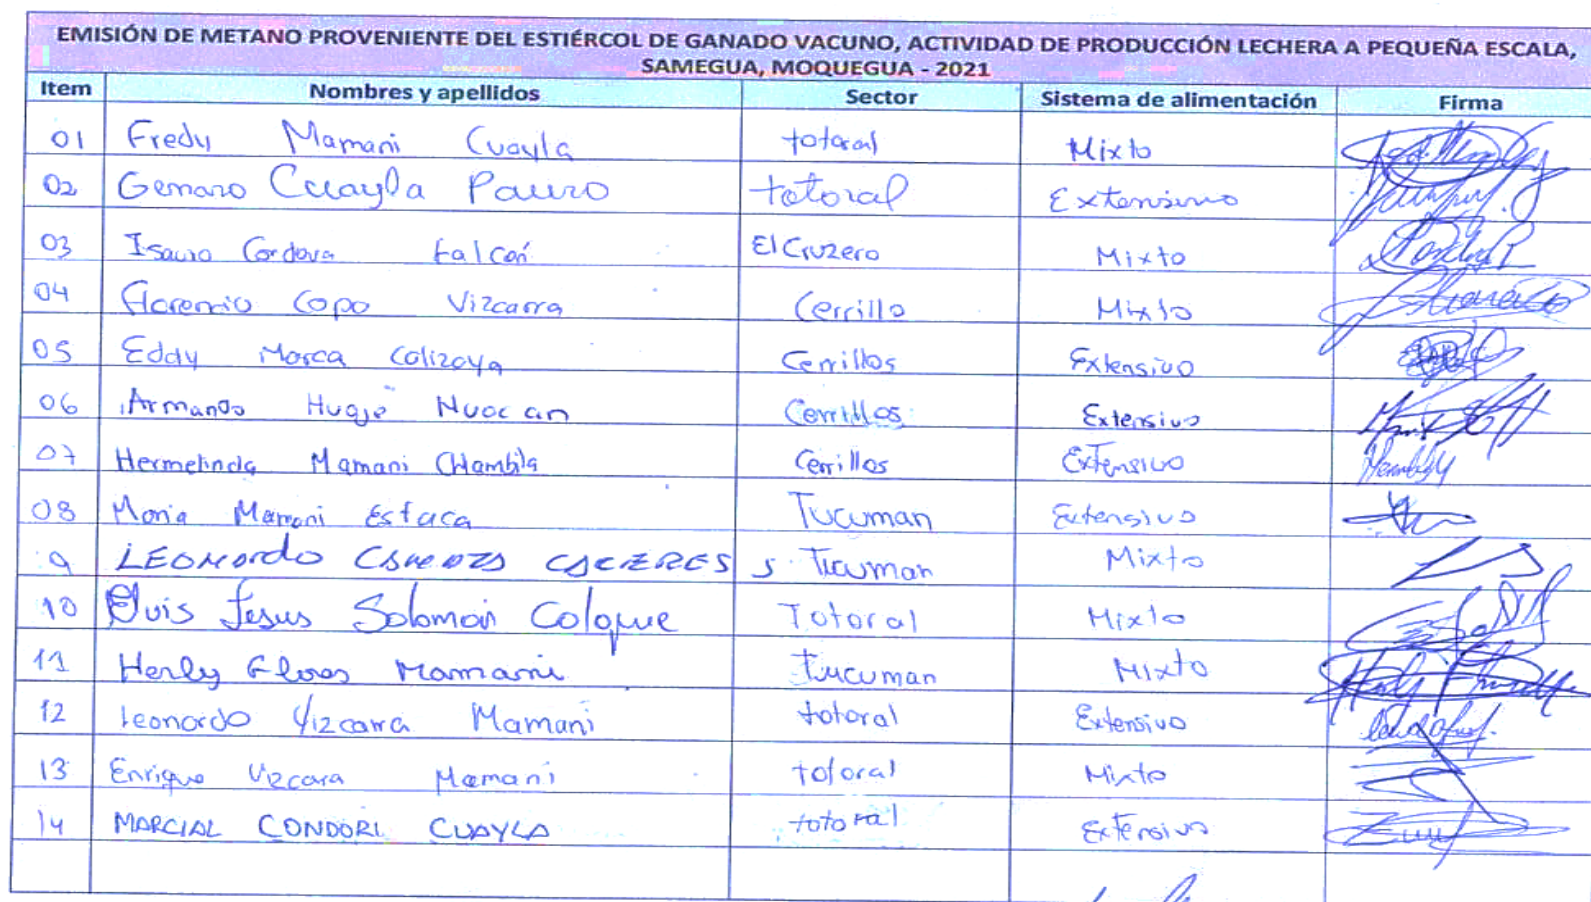 EMISIÓN DE METANO PROVENIENTE DEL ESTIÉRCOL DE GANADO VACUNO, ACTIVIDAD DE PRODUCCIÓN LECHERA A PEQUEÑA ESCALA,
SAMEGUA, MOQUEGUA - 2021
Item Nombres y apellidos Sector Sistema de alimentación Firma
01 Fredy Mamani Cuayla totoral Mixto
02 Genaro Cuayla Pauro totoral Extensivo
03 Isaura Cordova Falcón El Cruzero Mixto
04 Florencio Copo Vizcarra Cerrillo Mixto
05 Eddy Marca Calizaya Cerrillos Extensivo
06 Armando Cerrillos Extensivo
07 Hermelinda Mamani Chambila Cerrillos Extensivo
08 Maria Mamani Estaca Tucuman Extensivo
9 LEONardo CACERES Tucuman Mixto
10 Jesus Salomon Colque Totoral Mixto
11 Herly Flores Mamani tucuman Mixto
12 leonardo Vizcarra Mamani totoral Extensivo
13 Enrique Vizcara Mamani totoral Mixto
14 MARCIAL CONDORI CUAYLA totoral Extensivo